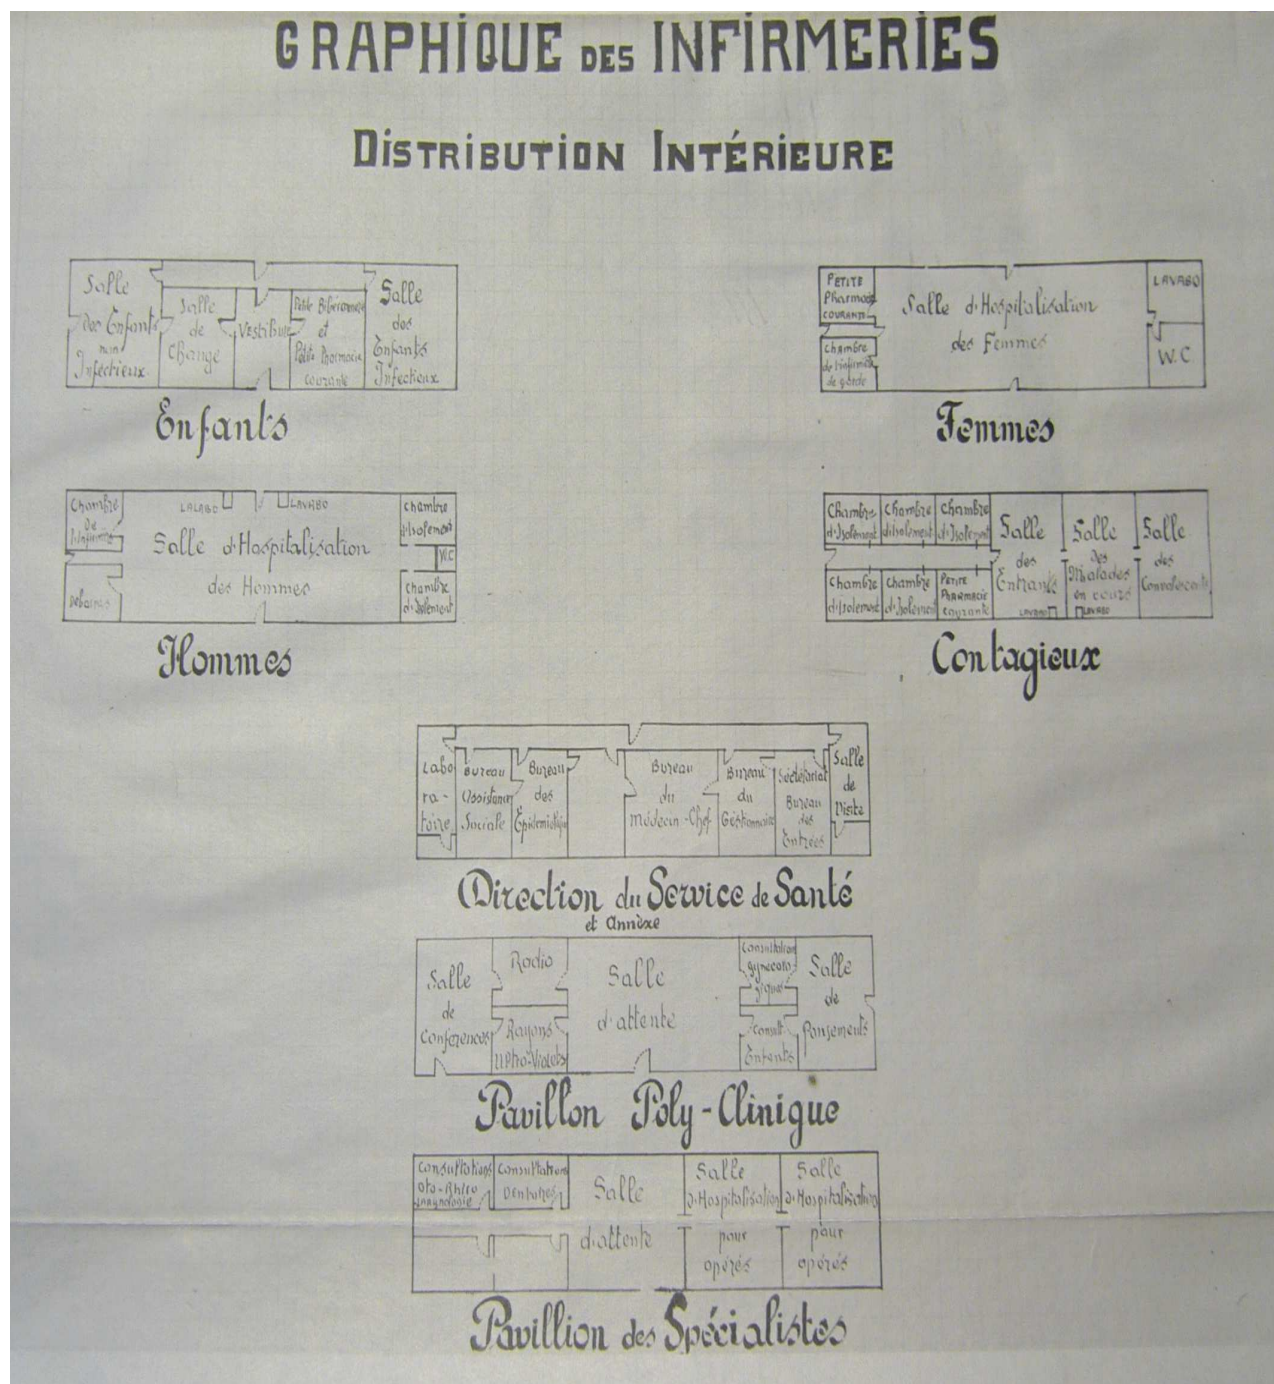 GRAPHIQUE DES INFIRMERIES
DISTRIBUTION INTÉRIEURE
Salle
des Enfants
non
Infectieux
Salle
de
Change
Vestibule
Petite Biberonnerie
et
Petite Pharmacie
courante
Salle
des
Enfants
Infectieux
Enfants
PETITE
Pharmacie
COURANTE
Chambre
de l'infirmière
de garde
Salle d'Hospitalisation
des Femmes
LAVABO
W.C
Femmes
Chambre
de
l'infirmière
LALABO
LAVABO
Salle d'Hospitalisation
des Hommes
Debarras
Chambre
d'Isolement
W.C
Chambre
d'Isolement
Hommes
Chambre
d'Isolement
Chambre
d'Isolement
Chambre
d'Isolement
Chambre
d'Isolement
Chambre
d'Isolement
PETITE
PHARMACIE
courante
Salle
des
Entrants
LAVABO
Salle
des
Malades
en cours
LAVABO
Salle
des
Convalescents
Contagieux
Labo
ra-
toire
Bureau
Assistance
Sociale
Bureau
des
Bureau
du
Médecin-Chef
Bureau
du
Géstionnaire
Sécrétariat
Bureau
des
Entrées
Salle
de
Visite
Direction du Service de Santé
et Annèxe
Salle
de
Conferences
Radio
Rayons
Ultra-Violets
Salle
d'attente
Consultation
gynecolo
giques
Consult.
Enfants
Salle
de
Pansements
Pavillon Poly-Clinique
Consultations
Oto-Rhino
Consultations
Dentaires
Salle
d'attente
Salle
d'Hospitalisation
pour
opérés
Salle
d'Hospitalisation
pour
opérés
Pavillion des Spécialistes